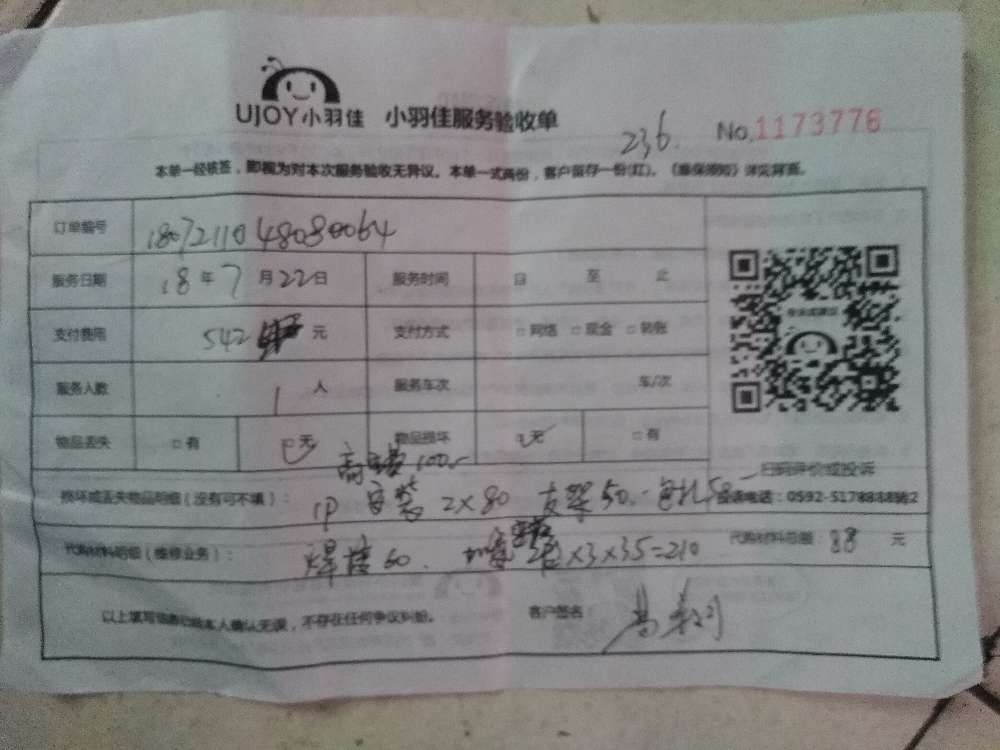 UJOY小羽佳 小羽佳服务验收单
236. No.1173776
本单一经核签，即视为对本次服务验收无异议。本单一式两份，客户留存一份(红)。《维保须知》详见背面。
订单编号
服务日期 18年7月22日 服务时间 自 至 止
支付费用 542 元 支付方式 □网络 □现金 □转账
服务人数 1人 服务车次 车/次
物品丢失 □有 □无 物品损坏 □无 □有
100.-
扫码评价或投诉
损坏或丢失物品明细（没有可不填）： 1P 安装 2×80 支架50.
投诉电话：0592-5178888
代购材料明细（维修业务）： 焊接60. ×3×35=210 代购材料总额 88 元
以上填写 本人确认无误，不存在任何争议纠纷。 客户签名：